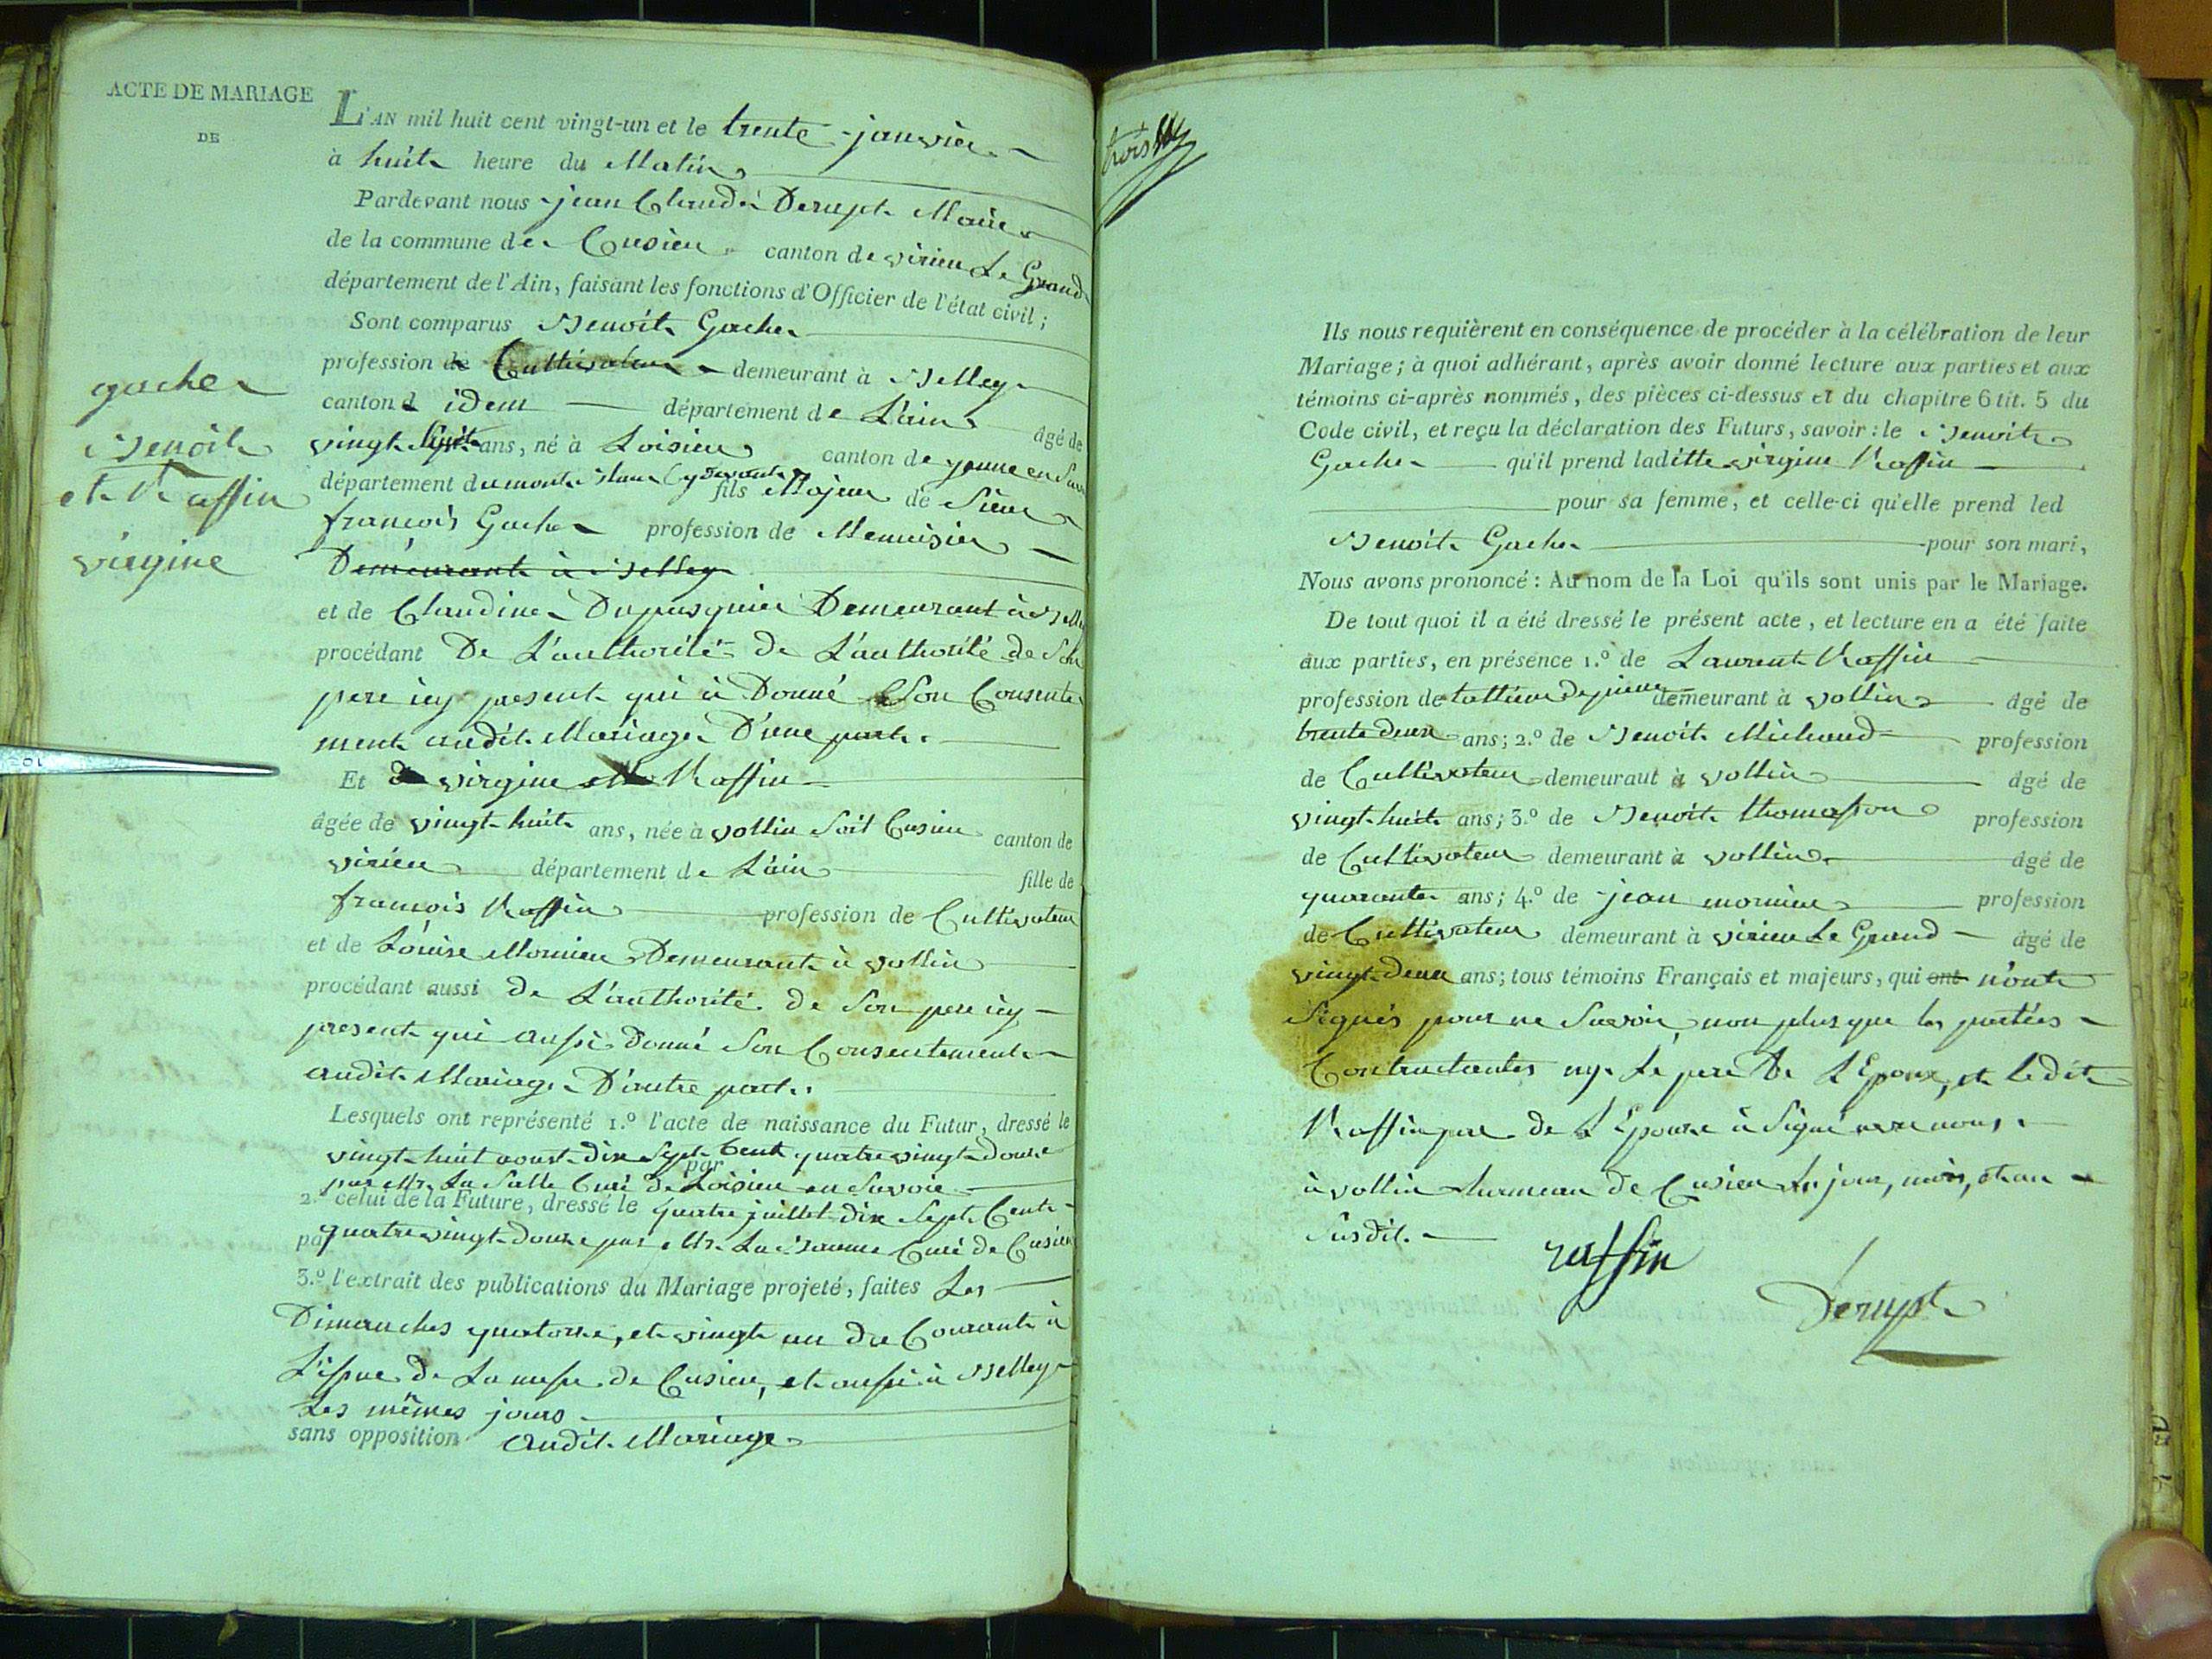 ACTE DE MARIAGE
DE
gache
Benoit
et Raffin
virgine
L'AN mil huit cent vingt-un et le trente janvier
à huit heure du Matin
Pardevant nous jean Claude Derupt Maire
de la commune de Cusieu canton de virieu Le Grand
département de l'Ain, faisant les fonctions d'Officier de l'état civil;
Sont comparus Benoit Gache
profession de Cultivateur demeurant à Belley
canton d idem département de L'ain âgé de
vingt huit ans, né à Loisieu canton de yenne en
département du mont Blanc Cy devant fils Majeur de Sieur
francois Gache profession de Menuisier
Demeurant à Belley
et de Claudine Dupasquier Demeurant à
procédant De L'authorité de L'authorité de Son
pere icy present qui à Donné Son Consente
ment audit Mariage D'une part.
Et virgine Raffin
âgée de vingt huit ans, née à vollin Soit Cusieu canton de
virieu département de L'ain fille de
francois Raffin profession de Cultivateur
et de Louise Mornieu Demeurant à vollin
procédant aussi de L'authorité de Son pere icy
present qui aussi donné Son Consentement
audit Mariage D'autre part.
Lesquels ont représenté 1.º l'acte de naissance du Futur, dressé le
vingt huit aoust dix Sept Cent quatre vingt douze
par
par Mr. La Salle Curé De Loisieu en Savoie
2.º celui de la Future, dressé le quatre juillet dix Sept Cent
par quatre vingt douze par Mr. Curé de Cusieu
3.º l'extrait des publications du Mariage projeté, faites Les
Dimanches quatorze, et vingt un du Courant à
L'issue de La messe de Cusieu, et aussi à Belley
Les mêmes jours
sans opposition audit Mariage
trois
Ils nous requièrent en conséquence de procéder à la célébration de leur
Mariage; à quoi adhérant, après avoir donné lecture aux parties et aux
témoins ci-après nommés, des pièces ci-dessus et du chapitre 6 tit. 5 du
Code civil, et reçu la déclaration des Futurs, savoir: le Benoit
Gache qu'il prend laditte virgine Raffin
pour sa femme, et celle-ci qu'elle prend led
Benoit Gache pour son mari,
Nous avons prononcé: Au nom de la Loi qu'ils sont unis par le Mariage.
De tout quoi il a été dressé le présent acte, et lecture en a été faite
aux parties, en présence 1.º de Laurent Raffin
profession de tallieur de pierre demeurant à vollin âgé de
trente deux ans; 2.º de Benoit Michaud profession
de Cultivateur demeuraut à vollin âgé de
vingt huit ans; 3.º de Benoit thomasson profession
de Cultivateur demeurant à vollin âgé de
quarante ans; 4.º de jean mornieu profession
de Cultivateur demeurant à virieu Le Grand âgé de
vingt deux ans; tous témoins Français et majeurs, qui ont n'ont
Signés pour ne Savoir, non plus que les parties
Contractantes ny Le pere De L'Epoux, et ledit
Raffin pere de L'Epouse à Signé avec nous.
à vollin hameau de Cusieu Les jour, mois, et an
Susdit.
raffin
Derupt